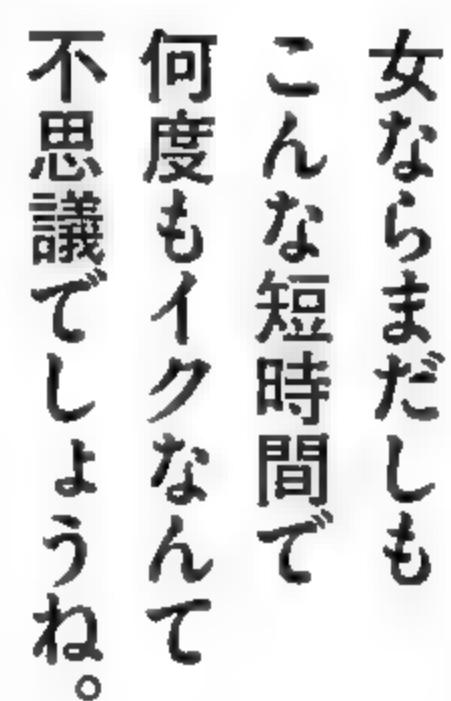 女ならまだしも
こんな短時間で
何度もイクなんて
不思議でしょうね。